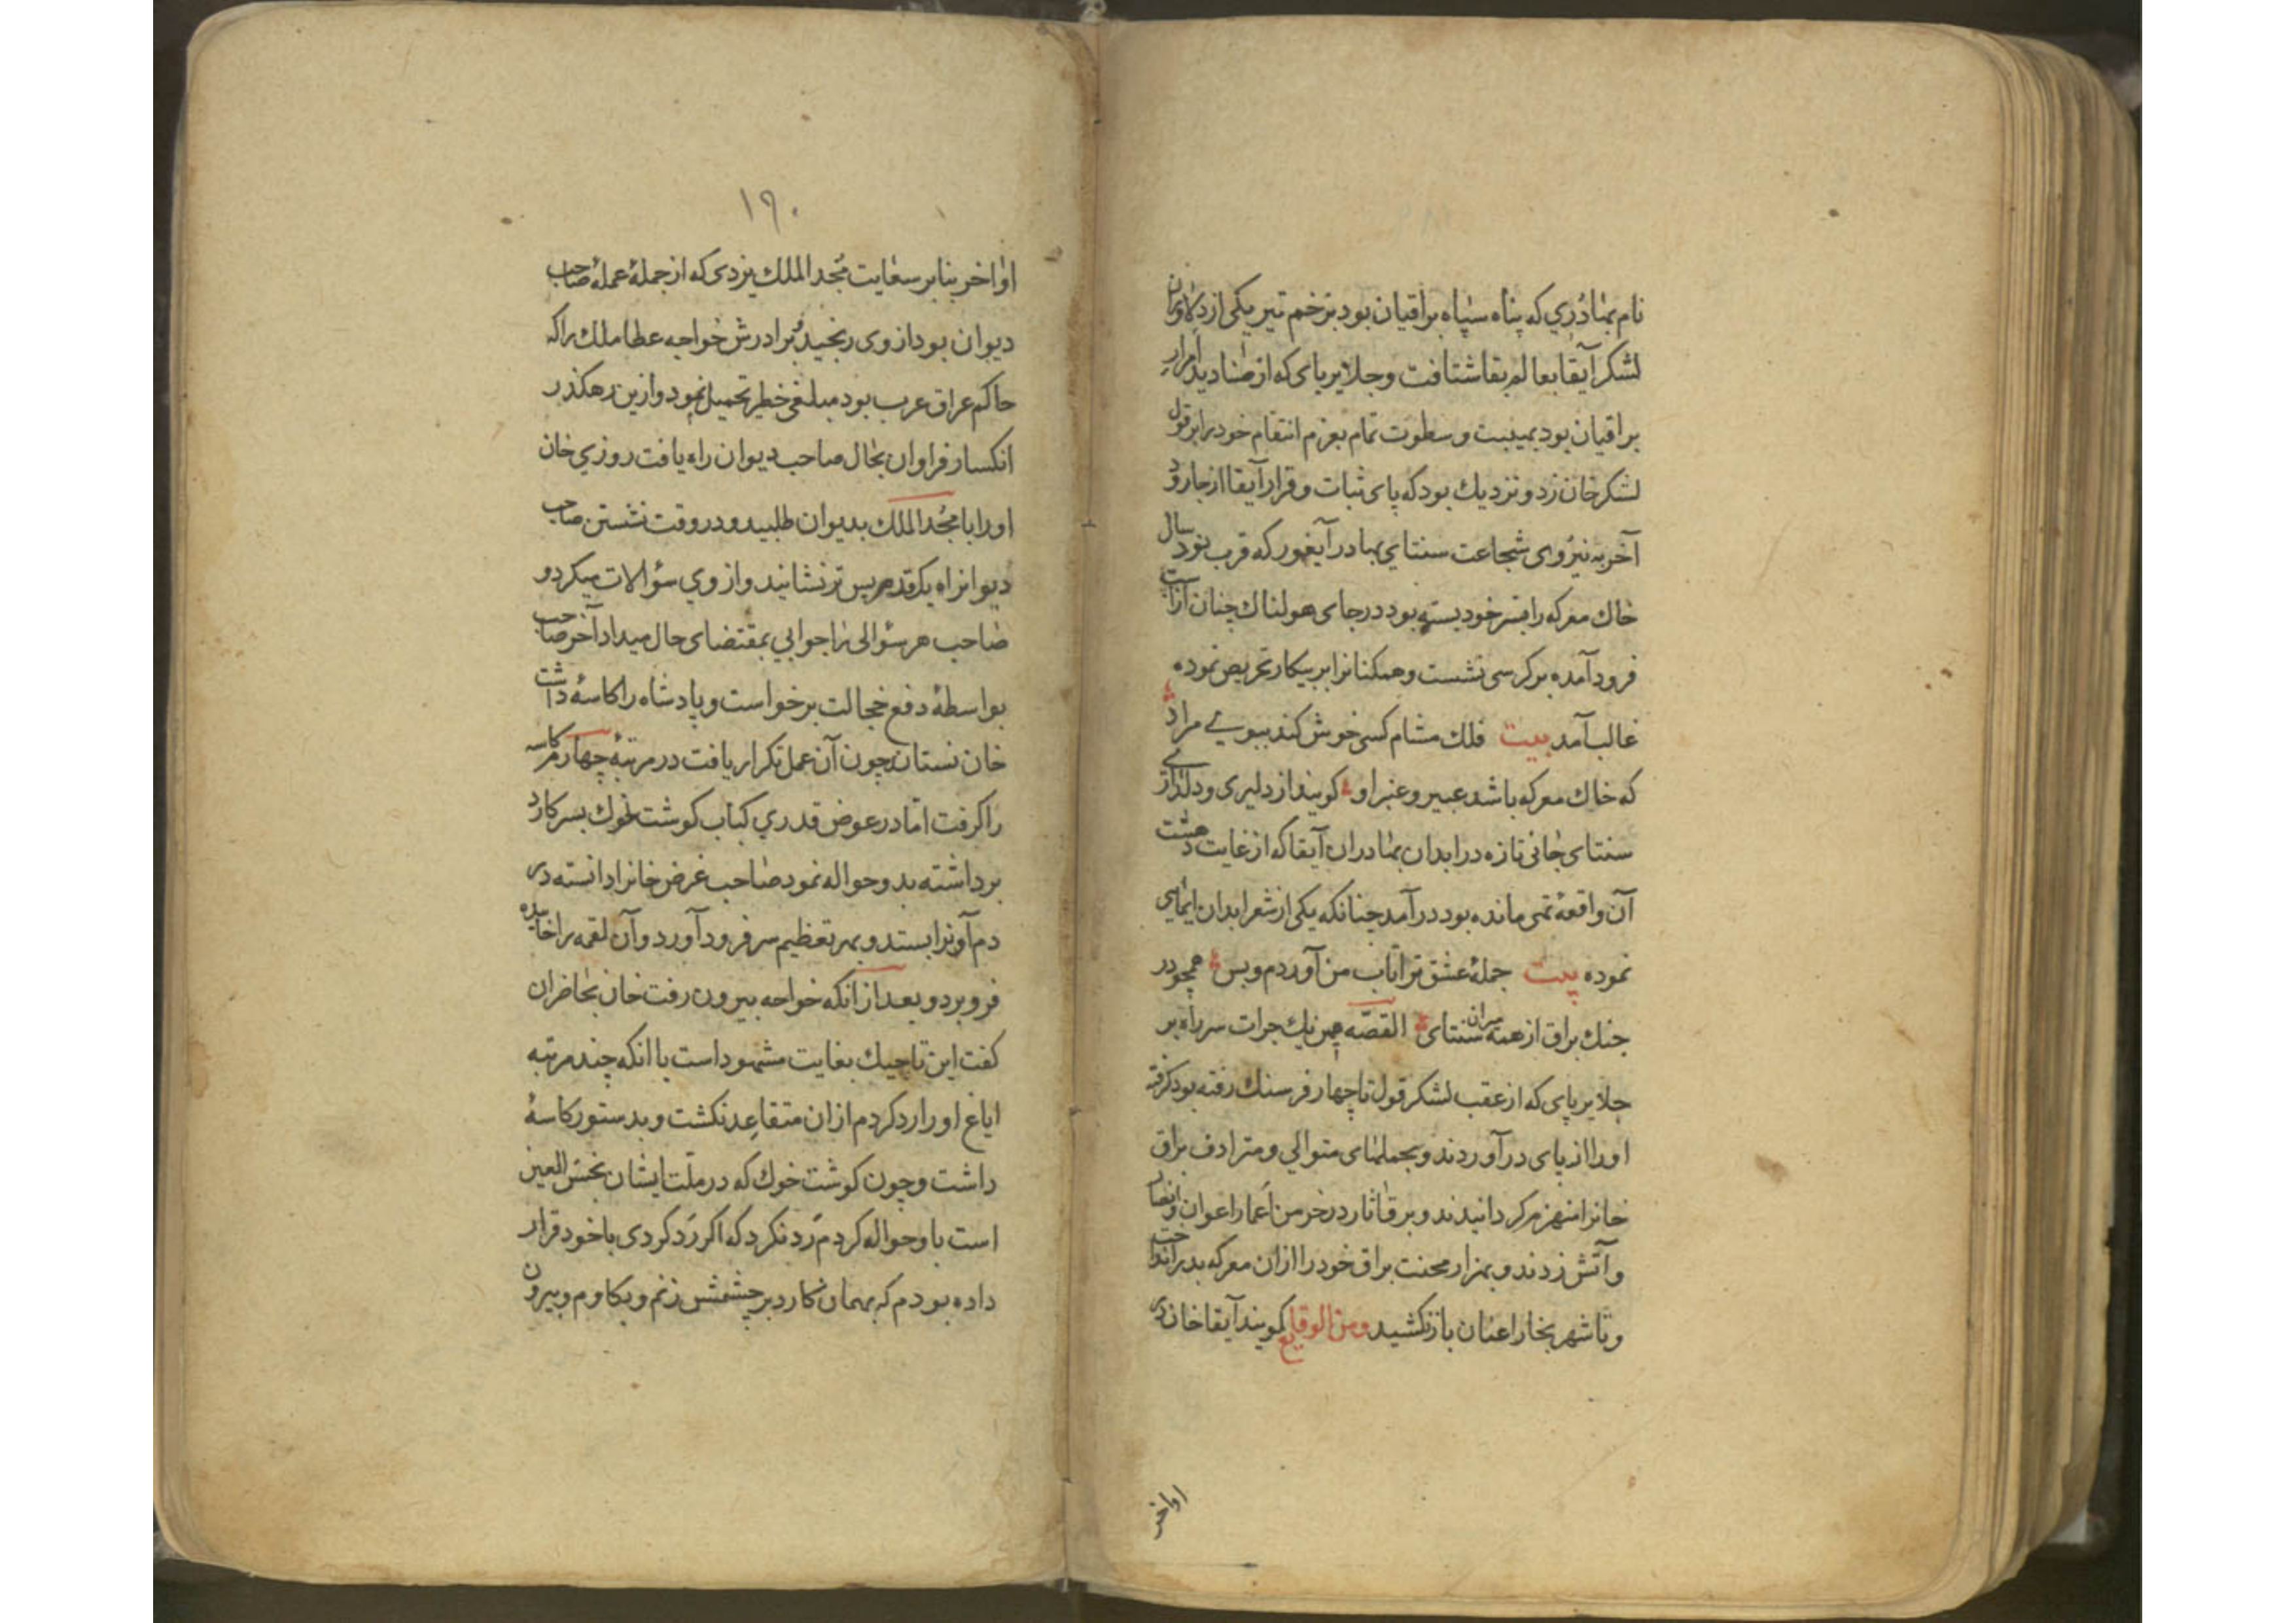 نام بهادری که پناه سپاه براقیان بود بزخم تیر یکی از دلاوران
لشکر آبقا بعالم بقا شتافت و جلایربای که از صنادید امرار
براقیان بود بهیبت و سطوت تمام بعزم انتقام خود را بر قول
لشکر خان زد و نزدیک بود که پای ثبات و قرار آبقا از جا رود
آخر به نیروی شجاعت سنتای بهادر آیغور که قرب نود سال
خاک معرکه را بستر خود بسته بود در جای هولناک چنان از اسب
فرود آمده بر کرسی نشست و همکنانرا بر پیکار تحریص نموده
غالب آمد بیت فلک مشام کسی خوش کند ببوی مراد
که خاک معرکه باشد عبیر و عنبر او کویند از دلیری و دلنوازی
سنتای جانی تازه در ابدان بهادران آبقا که از غایت دهشت
آن واقعهٔ تهی مانده بود در آمد چنانکه یکی از شعرا بدان ایمایی
نموده بیت جملهٔ عشق ترا تاب من آوردم و بس همچو در
جنک براق از همه میران سنتای القصه بهمین یک جرات سر راه بر
جلایربای که از عقب لشکر قول تا چهار فرسنک رفته بود کرفته
او را از پای در آوردند و بحملهای متوالی و مترادف براق
خانرا منهزم کردانیدند و برق آثار در خرمن اعمار اعوان و انصار
و آتش زدند و بهزار محنت براق خود را ازان معرکه بدر انداخت
و تا شهر بخارا عنان باز نکشید و من الوقایع کویند آبقا خان در
اواخر
۱۹۰
اواخر بنابر سعایت مجد الملک یزدی که از جملهٔ عملهٔ صاحب
دیوان بود از وی رنجید و برادرش خواجه عطا ملک را که
حاکم عراق عرب بود مبلغی خطیر تحمیل نمود و ازین رهکذر
انکسار فراوان بحال صاحب دیوان راه یافت روزی خان
او را با مجد الملک بدیوان طلبید و در وقت نشستن صاحب
دیوانرا یک قدم پس تر نشانید و از وی سؤالات میکرد و
صاحب هر سؤالی را جوابی بمقتضای حال میداد آخر صاحب
بواسطهٔ دفع خجالت برخواست و پادشاه را کاسهٔ داشت
خان نستاند چون آن عمل تکرار یافت در مرتبهٔ چهارم کاسه
را کرفت اما در عوض قدری کباب کوشت خوک بسر کارد
برداشته بدو حواله نمود صاحب غرض خانرا دانسته در
دم آنرا بستد و بهر تعظیم سر فرود آورد و آن لقمه را خاییده
فرو برد و بعد از انکه خواجه بیرون رفت خان بحاضران
کفت این تاجیک بغایت مشهود است با انکه چند مرتبه
ایاغ او را رد کردم ازان متقاعد نکشت و بدستور کاسهٔ
داشت و چون کوشت خوک که در ملت ایشان نجس العین
است باو حواله کردم رد نکرد که اکر رد کردی با خود قرار
داده بودم که بهمان کارد بر چشمش زنم و بکاوم و بیرون